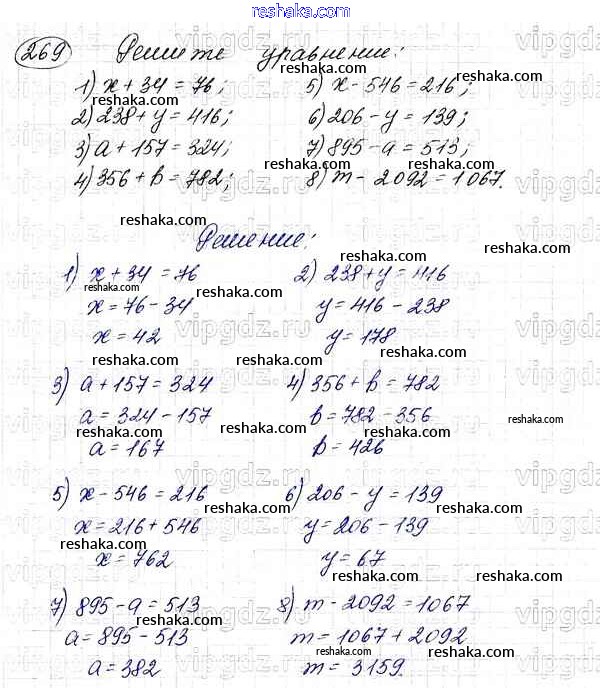 reshaka.com
269 Решите уравнение:
1) x + 34 = 76; 5) x - 546 = 216;
reshaka.com reshaka.com
2) 238 + y = 416; 6) 206 - y = 139;
reshaka.com reshaka.com
3) a + 157 = 324; 7) 895 - a = 513;
reshaka.com reshaka.com
4) 356 + b = 782; 8) m - 2092 = 1067.
reshaka.com reshaka.com
reshaka.com
Решение:
reshaka.com
1) x + 34 = 76 2) 238 + y = 416
reshaka.com reshaka.com
x = 76 - 34 y = 416 - 238
x = 42 y = 178
reshaka.com reshaka.com
3) a + 157 = 324 4) 356 + b = 782
reshaka.com
a = 324 - 157 b = 782 - 356
reshaka.com reshaka.com reshaka.com
a = 167 b = 426
5) x - 546 = 216 6) 206 - y = 139
reshaka.com reshaka.com
x = 216 + 546 y = 206 - 139
reshaka.com reshaka.com
x = 762 y = 67
7) 895 - a = 513 8) m - 2092 = 1067
reshaka.com reshaka.com
a = 895 - 513 m = 1067 + 2092
reshaka.com
a = 382 m = 3159.
reshaka.com reshaka.com
vipgdz.ru